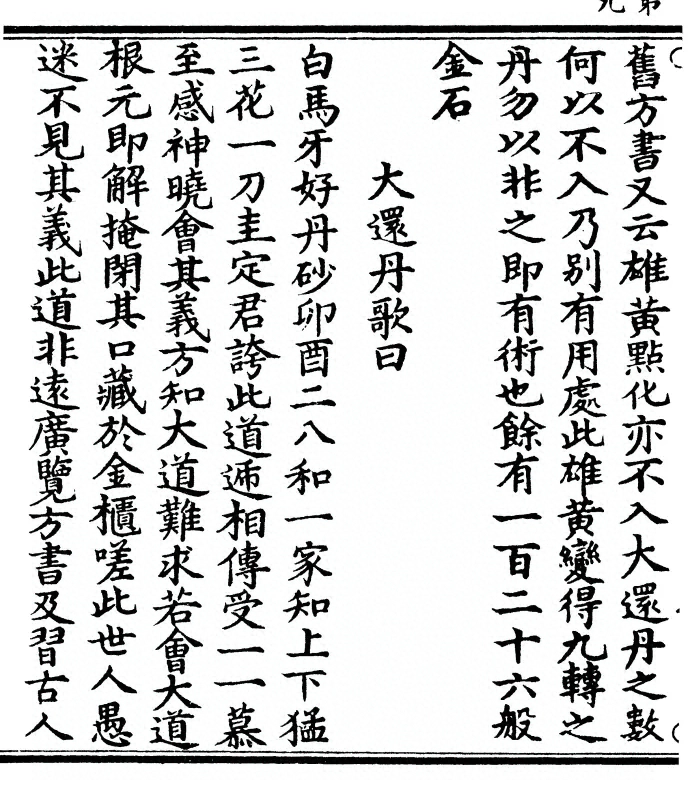 舊方書又云雄黃點化亦不入大還丹之數
何以不入乃别有用處此雄黃變得九轉之
丹勿以非之即有術也餘有一百二十六般
金石
大還丹歌曰
白馬牙好丹砂卯酉二八和一家知上下猛
三花一刀圭定君誇此道遞相傳受一一慕
至感神曉會其義方知大道難求若會大道
根元即解掩閉其口藏於金櫃嗟此世人愚
迷不見其義此道非遠廣覽方書及習古人